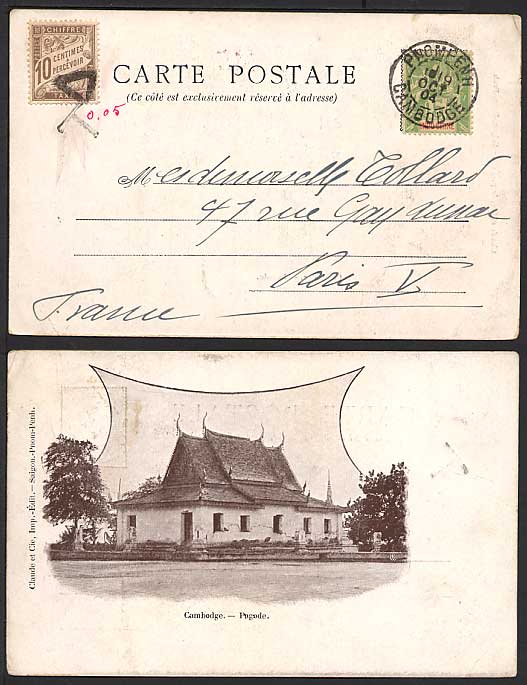 CHIFFRE
10 CENTIMES
À PERCEVOIR
T
0.05
CARTE POSTALE
(Ce côté est exclusivement réservé à l'adresse)
PNOMPENH
19
04
CAMBODGE
INDO-CHINE
Mesdemoiselle Collard
47 rue Gay Lussac
Paris V
France
Claude et Cie, Imp.-Édit. — Saigon.-Pnom-Penh.
Cambodge. — Pagode.